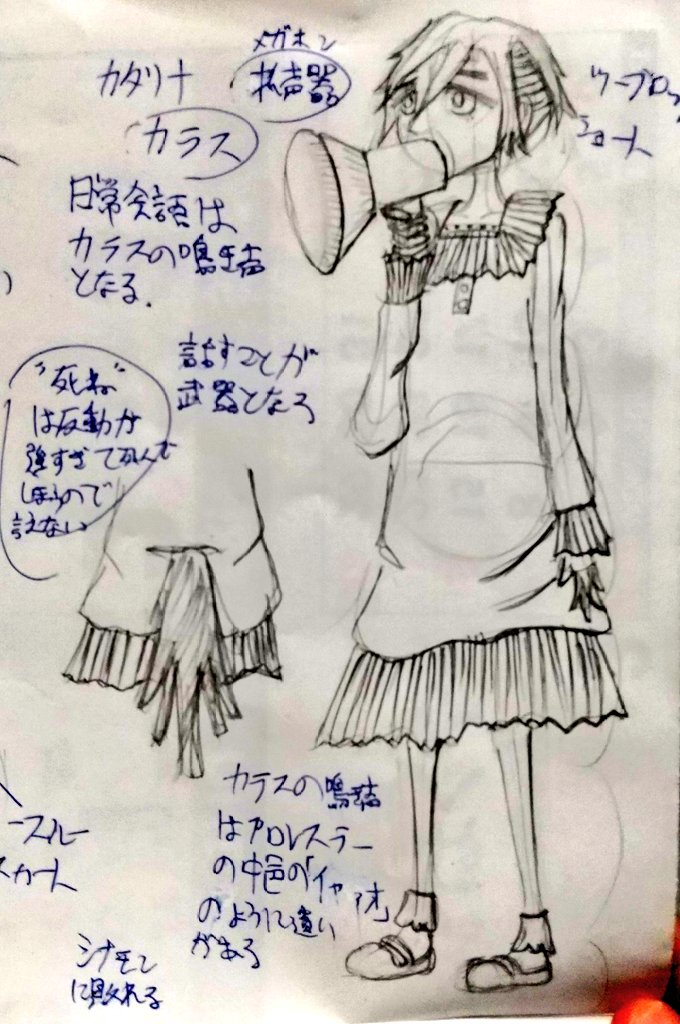 メガホン
カタリナ
拡声器
カラス
ツーブロック
ショート
日常会話は
カラスの鳴き声
となる.
話すことが
武器となる
"死ね"
は反動が
強すぎて死んで
しまうので
言えない
カラスの鳴き声
はプロレスラー
の中邑の「イヤァオ」
のように違い
がある
スルー
スカート
シナモン
に敗れる